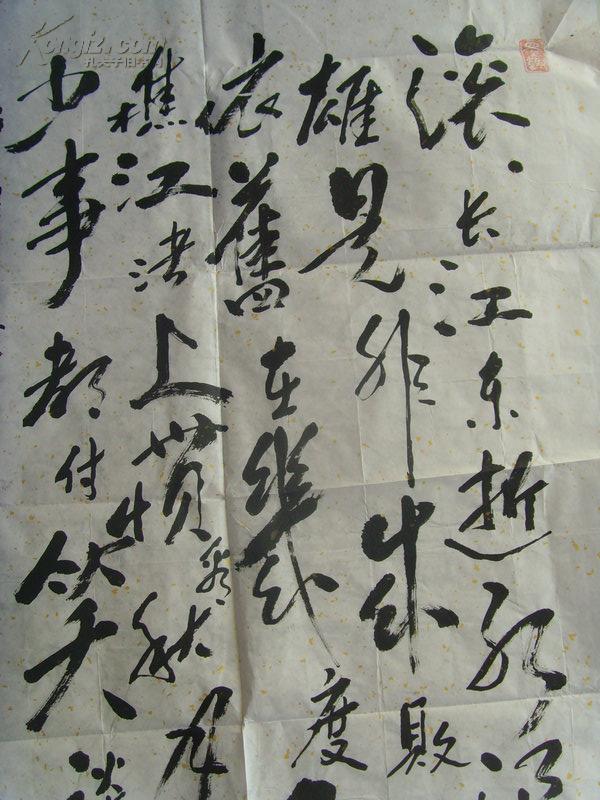 Kongfz.com
孔夫子旧书网
滚〻长江东逝水
雄是非成敗
依舊在幾度
樵江渚上慣看秋月
少事都付笑